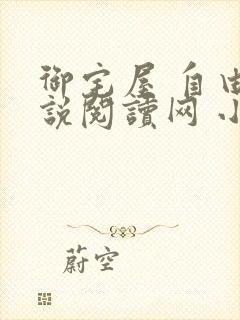 御宅屋 自由
説閱讀网 小
蔚空